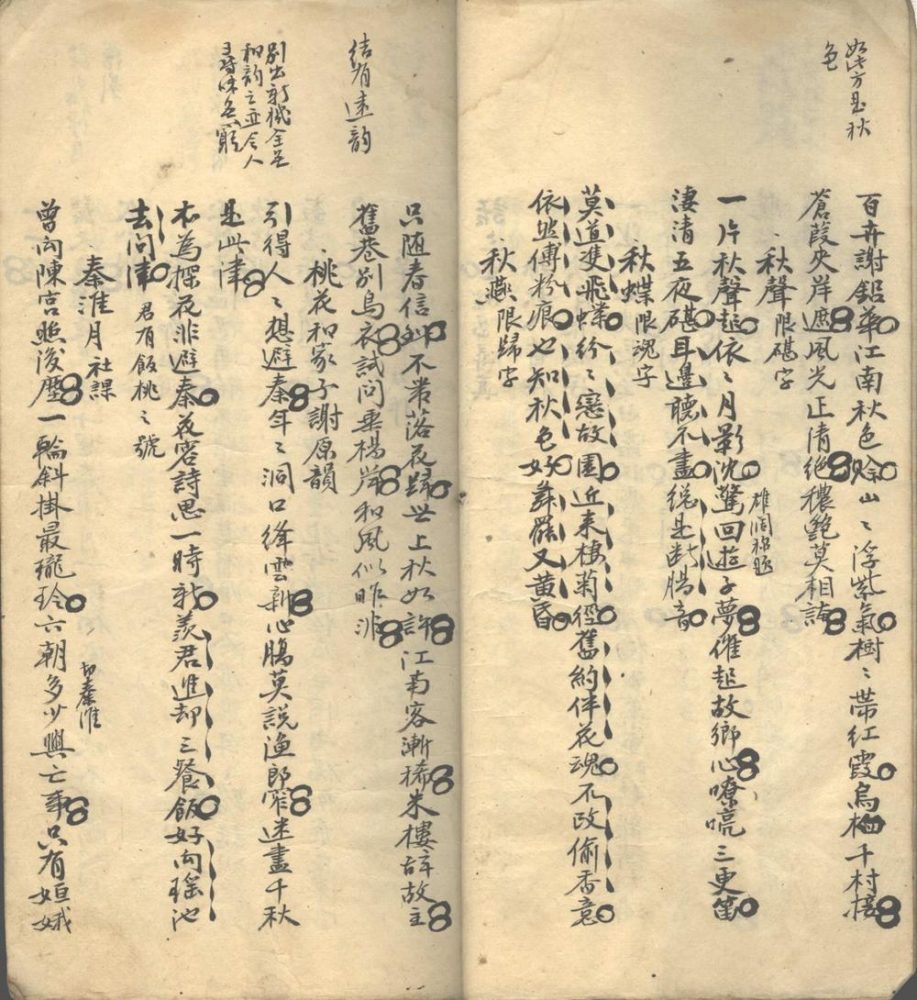 如此方是秋
色
百卉謝鉛華江南秋色賒山〻浮紫氣樹〻帶紅霞烏桕千村接
蒼葭夾岸遮風光正清絕穠艷莫相誇
秋聲限碪字
一片秋聲起依〻月影沈驚回遊子夢催起故鄉心嘹喨三更笛
淒清五夜碪耳邊聽不盡總是斷腸音
雄渾稱題
秋蝶限魂字
莫道雙飛蝶紛〻戀故園近來棲菊徑舊約伴花魂不改偷香意
依然傅粉痕也知秋色好舞罷又黃昏
秋燕限歸字
只隨春信到不帶落花歸世上秋如許江南客漸稀朱樓辞故主
舊巷別烏衣試問垂楊岸和風似昨非
結有遠韻
桃花和家子謝原韻
引得人〻想避秦年〻洞口絳雲新心腸莫說漁郎窄迷盡千秋
是此津
別出新機全是
和韻之並令人
尋味無窮
本為探花非避秦花容詩思一時新羨君進却三餐飯好向瑤池
去問津 君有飯桃之號
秦淮月 社課
曾向陳宮照後塵一輪斜掛最瓏玲六朝多少興亡事只有姮娥
切秦淮